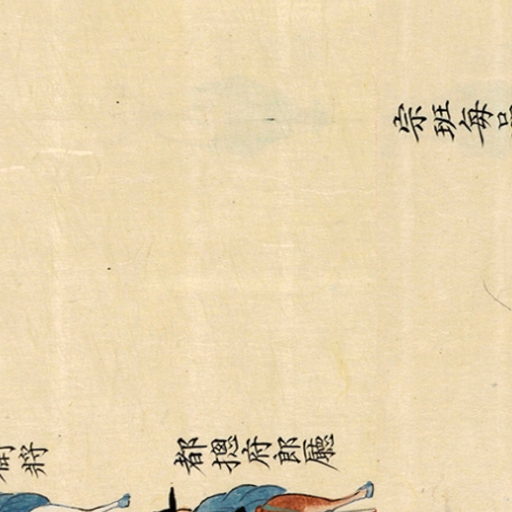 宗班每品
都摠府郎廳
將